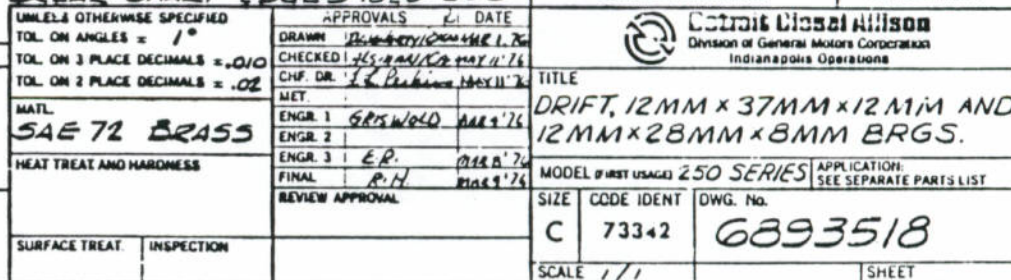 UNLESS OTHERWISE SPECIFIED
TOL. ON ANGLES ± 1°
TOL. ON 3 PLACE DECIMALS ± .010
TOL. ON 2 PLACE DECIMALS ± .02
MATL.
SAE 72 BRASS
HEAT TREAT AND HARDNESS
SURFACE TREAT. INSPECTION
APPROVALS DATE
DRAWN MAR 1, 76
CHECKED MAY 11 '76
CHF. DR. MAY 11 '76
MET.
ENGR. 1 GRISWOLD MAR 9 '76
ENGR. 2
ENGR. 3 E.R. MAR 8 '76
FINAL R.H. MAR 9 '76
REVIEW APPROVAL
Detroit Diesel Allison
Division of General Motors Corporation
Indianapolis Operations
TITLE
DRIFT, 12MM x 37MM x 12MM AND
12MM x 28MM x 8MM BRGS.
MODEL (FIRST USAGE) 250 SERIES APPLICATION: SEE SEPARATE PARTS LIST
SIZE CODE IDENT DWG. No.
C 73342 6893518
SCALE 1/1 SHEET